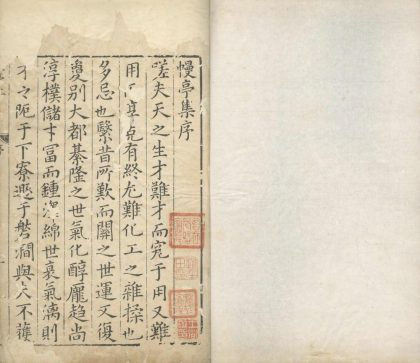 幔亭集序
嗟夫天之生才難才而究于用又難
用而享克有終尤難化工之雜揉也
多忌也繄昔所歎而關之世運文復
夐別大都綦隆之世氣化醇龐趨尚
淳樸儲才冨而鍾 綿世衰氣漓則
不之阨于下寮遯于 澗與 不獲